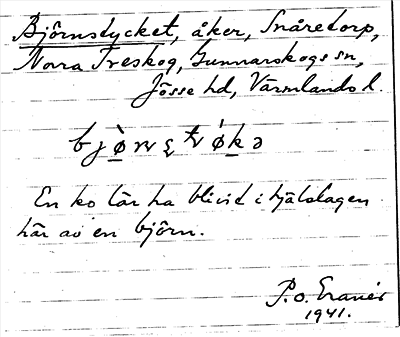 Björnstycket, åker, Snåretorp,
Norra Treskog, Gunnarskogs sn,
Jösse hd, Värmlands l.
En ko lär ha blivit ihjälslagen
här av en björn.
P.O. Eranér
1941.